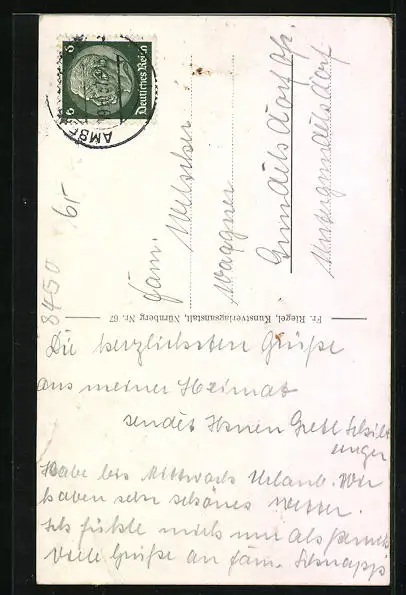 6
6
Deutsches Reich
AMB
Fam.
Welscher
Wagner
8450
6r
Fr. Riegel, Kunstverlagsanstalt, Nürnberg Nr. 67
Die herzlichsten Grüße
aus meiner Heimat
sendet Ihnen Gretl
Habe bis Mittwoch Urlaub. Wir
haben sehr schönes Wetter.
Ich fühle mich nur als
Viele Grüße an Fam. Schnapp